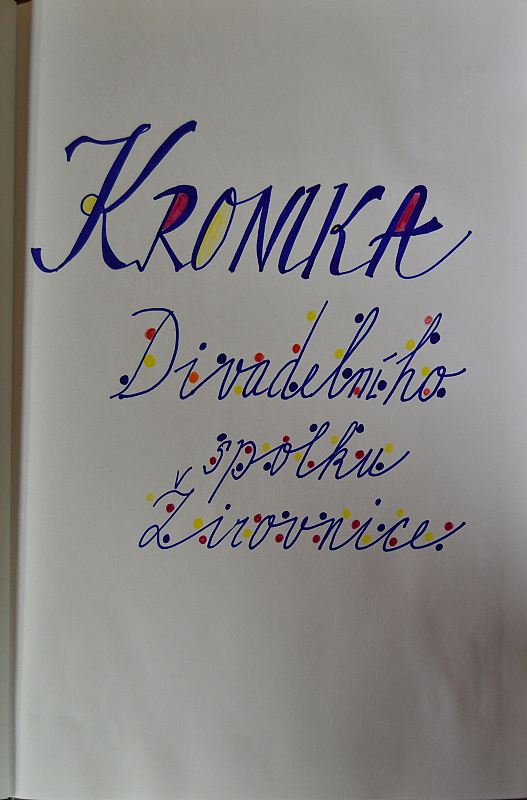 KRONIKA
Divadelního
spolku
Žirovnice.